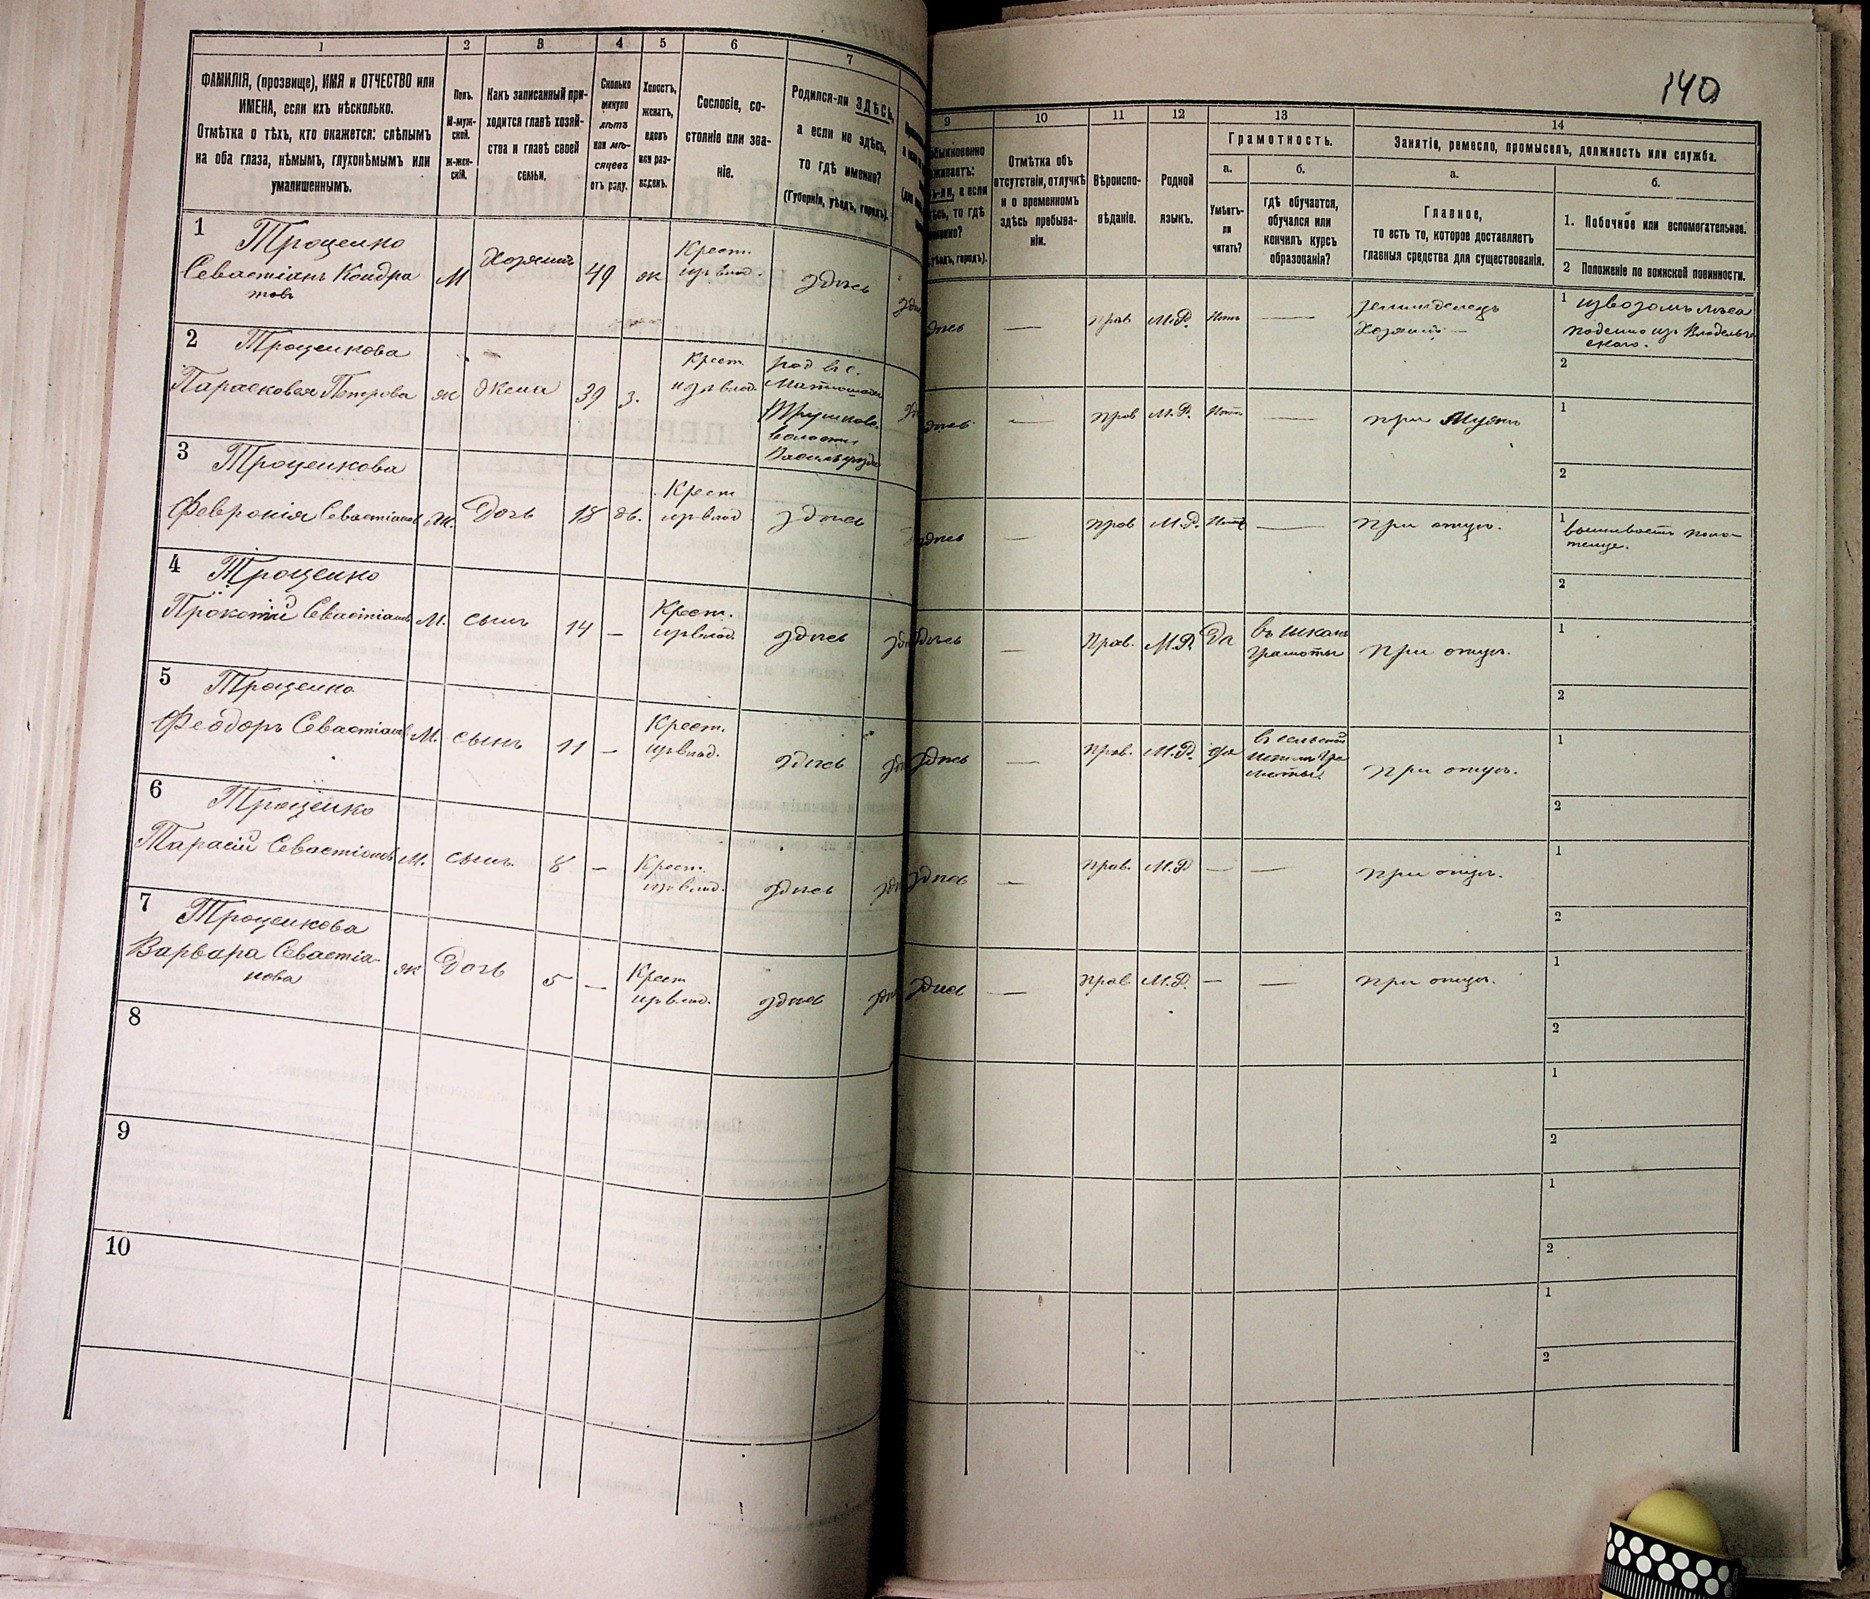 140
1
2
3
4
5
6
7
ФАМИЛІЯ, (прозвище), ИМЯ и ОТЧЕСТВО или
ИМЕНА, если ихъ нѣсколько.
Отмѣтка о тѣхъ, кто окажется: слѣпымъ
на оба глаза, нѣмымъ, глухонѣмымъ или
умалишеннымъ.
Полъ.
М-муж-
ской.
ж-жен-
скій.
Какъ записанный при-
ходится главѣ хозяй-
ства и главѣ своей
семьи.
Сколько
минуло
лѣтъ
или мѣ-
сяцевъ
отъ роду.
Холостъ,
женатъ,
вдовъ
или раз-
веденъ.
Сословіе, со-
стояніе или зва-
ніе.
Родился-ли ЗДѢСЬ,
а если не здѣсь,
то гдѣ именно?
(Губернія, уѣздъ, городъ).
9
10
11
12
13
14
Отмѣтка объ
отсутствіи, отлучкѣ
и о временномъ
здѣсь пребыва-
ніи.
Вѣроиспо-
вѣданіе.
Родной
языкъ.
Грамотность.
а.
б.
Умѣетъ-
ли
читать?
гдѣ обучается,
обучался или
кончилъ курсъ
образованія?
Занятіе, ремесло, промыселъ, должность или служба.
а.
б.
Главное,
то есть то, которое доставляетъ
главныя средства для существованія.
1. Побочное или вспомогательное.
2 Положеніе по воинской повинности.
1
Троценко
Севастіанъ Кондра
товъ
М
Хозяинъ
49
ж
Крест.
изъ влад.
здѣсь
— Прав М.Р. Нетъ —
земледелецъ
Хозяинъ —
1 извозомъ
2
2
Троценкова
Парасковея Петрова
ж
Жена
39
з.
Крест
изъ влад.
род въ с.
волости
— Прав М.Р. Нетъ —
при Мужи
1
2
3
Троценкова
Февронія Севастіанов
Ж.
Дочь
18
дв.
Крест
изъ влад
здѣсь
здѣсь — прав М.Р. Нетъ —
При отцѣ.
1 вышиваетъ поло-
тенце.
2
4
Троценко
Прокотій Севастіановъ
М.
сынъ
14
—
Крест.
изъ влад.
здѣсь
здѣсь — Прав. М.Р. Да
въ школѣ
грамоты
При отцѣ.
1
2
5
Троценко
Феодоръ Севастіановъ
М.
сынъ
11
—
Крест.
изъ влад.
здѣсь
здѣсь — Прав. М.Р. да
въ сельской
школѣ гра
моты.
При отцѣ.
1
2
6
Троценко
Тарасій Севастіановъ
М.
сынъ
8
—
Крест.
изъ влад.
здѣсь
здѣсь — Прав. М.Р — —
При отцѣ.
1
2
7
Троценкова
Варвара Севастіа-
нова
ж
Дочь
5
—
Крест
изъ влад.
здѣсь
здѣсь — Прав. М.Р. — —
При отцѣ.
1
2
8
1
2
9
1
2
10
1
2